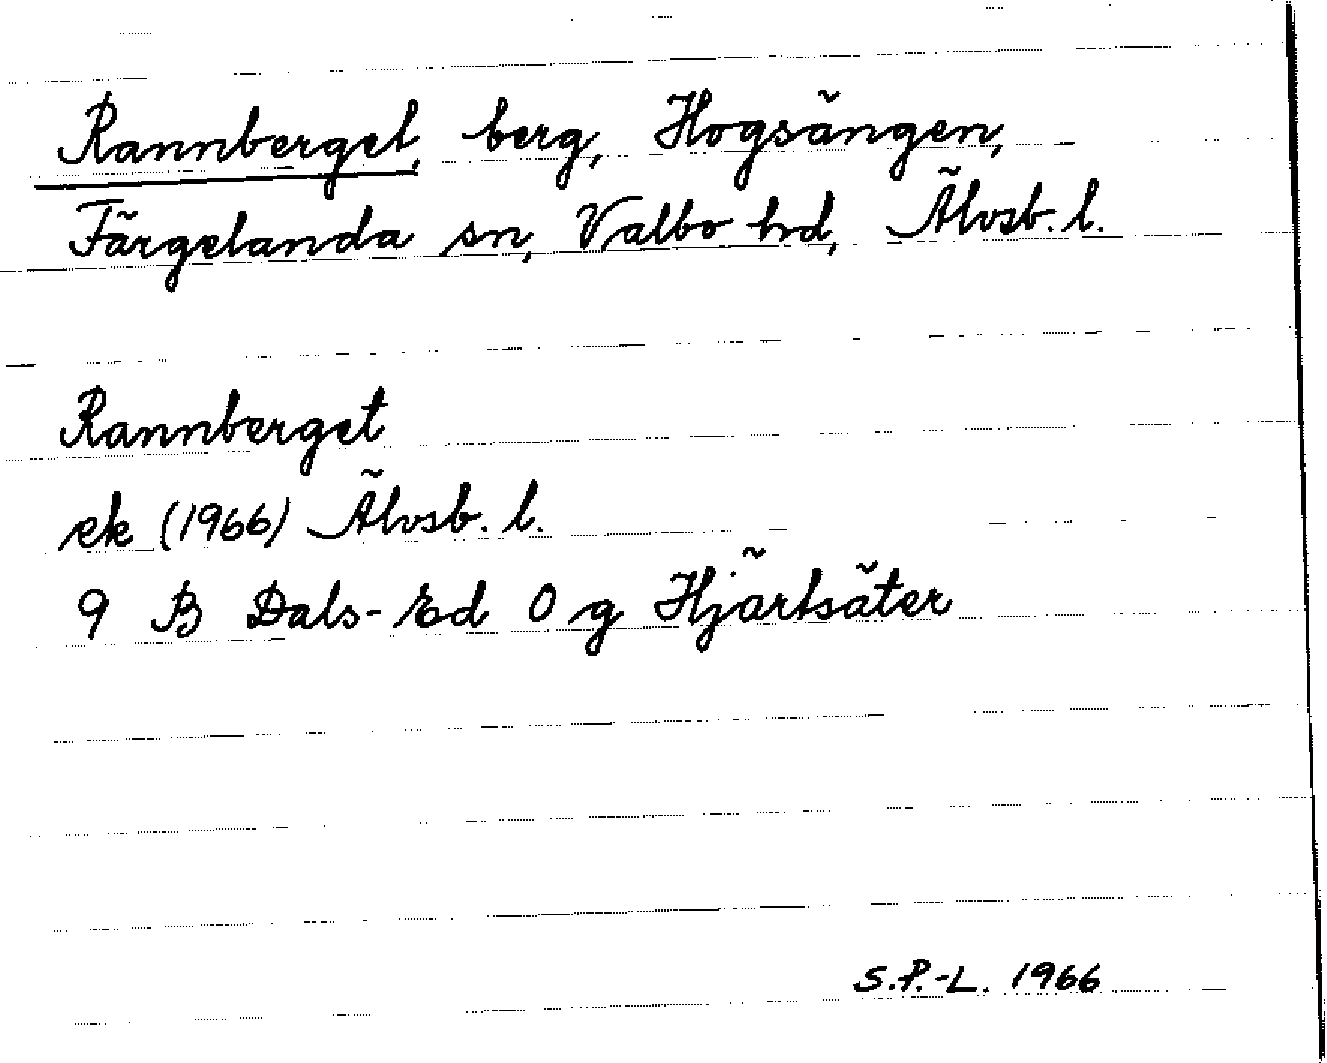 Rannberget, berg, Hogsängen,
Färgelanda sn, Valbo hd, Älvsb. l.
Rannberget
ek (1966) Älvsb. l.
9 B Dals-Ed 0 g Hjärtsäter
S.P.-L. 1966